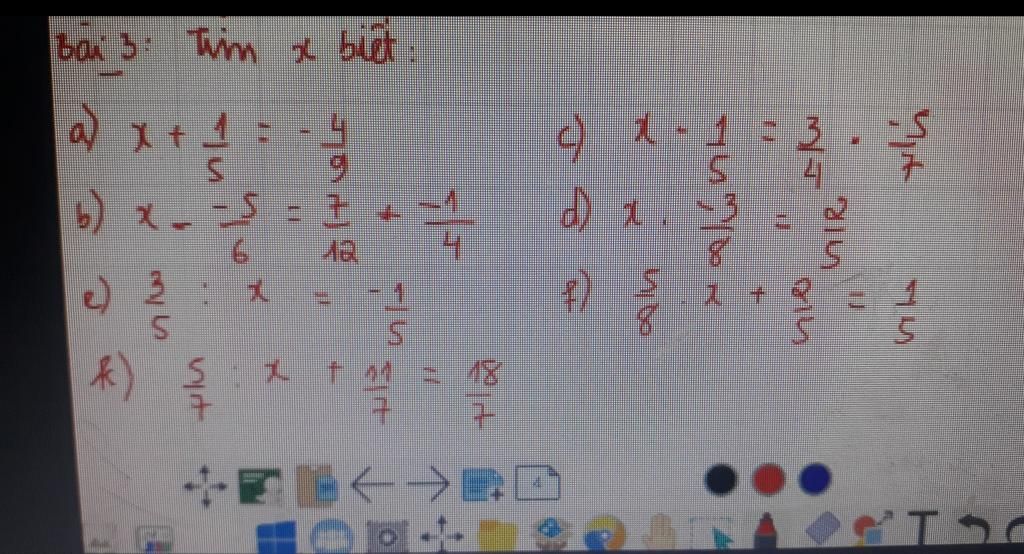 Bài 3: Tìm x biết:
a) x + 1/5 = -4/9
c) x - 1/5 = 3/4 . -5/7
b) x - -5/6 = 7/12 + -1/4
d) x . -3/8 = 2/5
e) 3/5 : x = -1/5
f) 5/8 . x + 2/5 = 1/5
k) 5/7 : x + 11/7 = 18/7
4
T